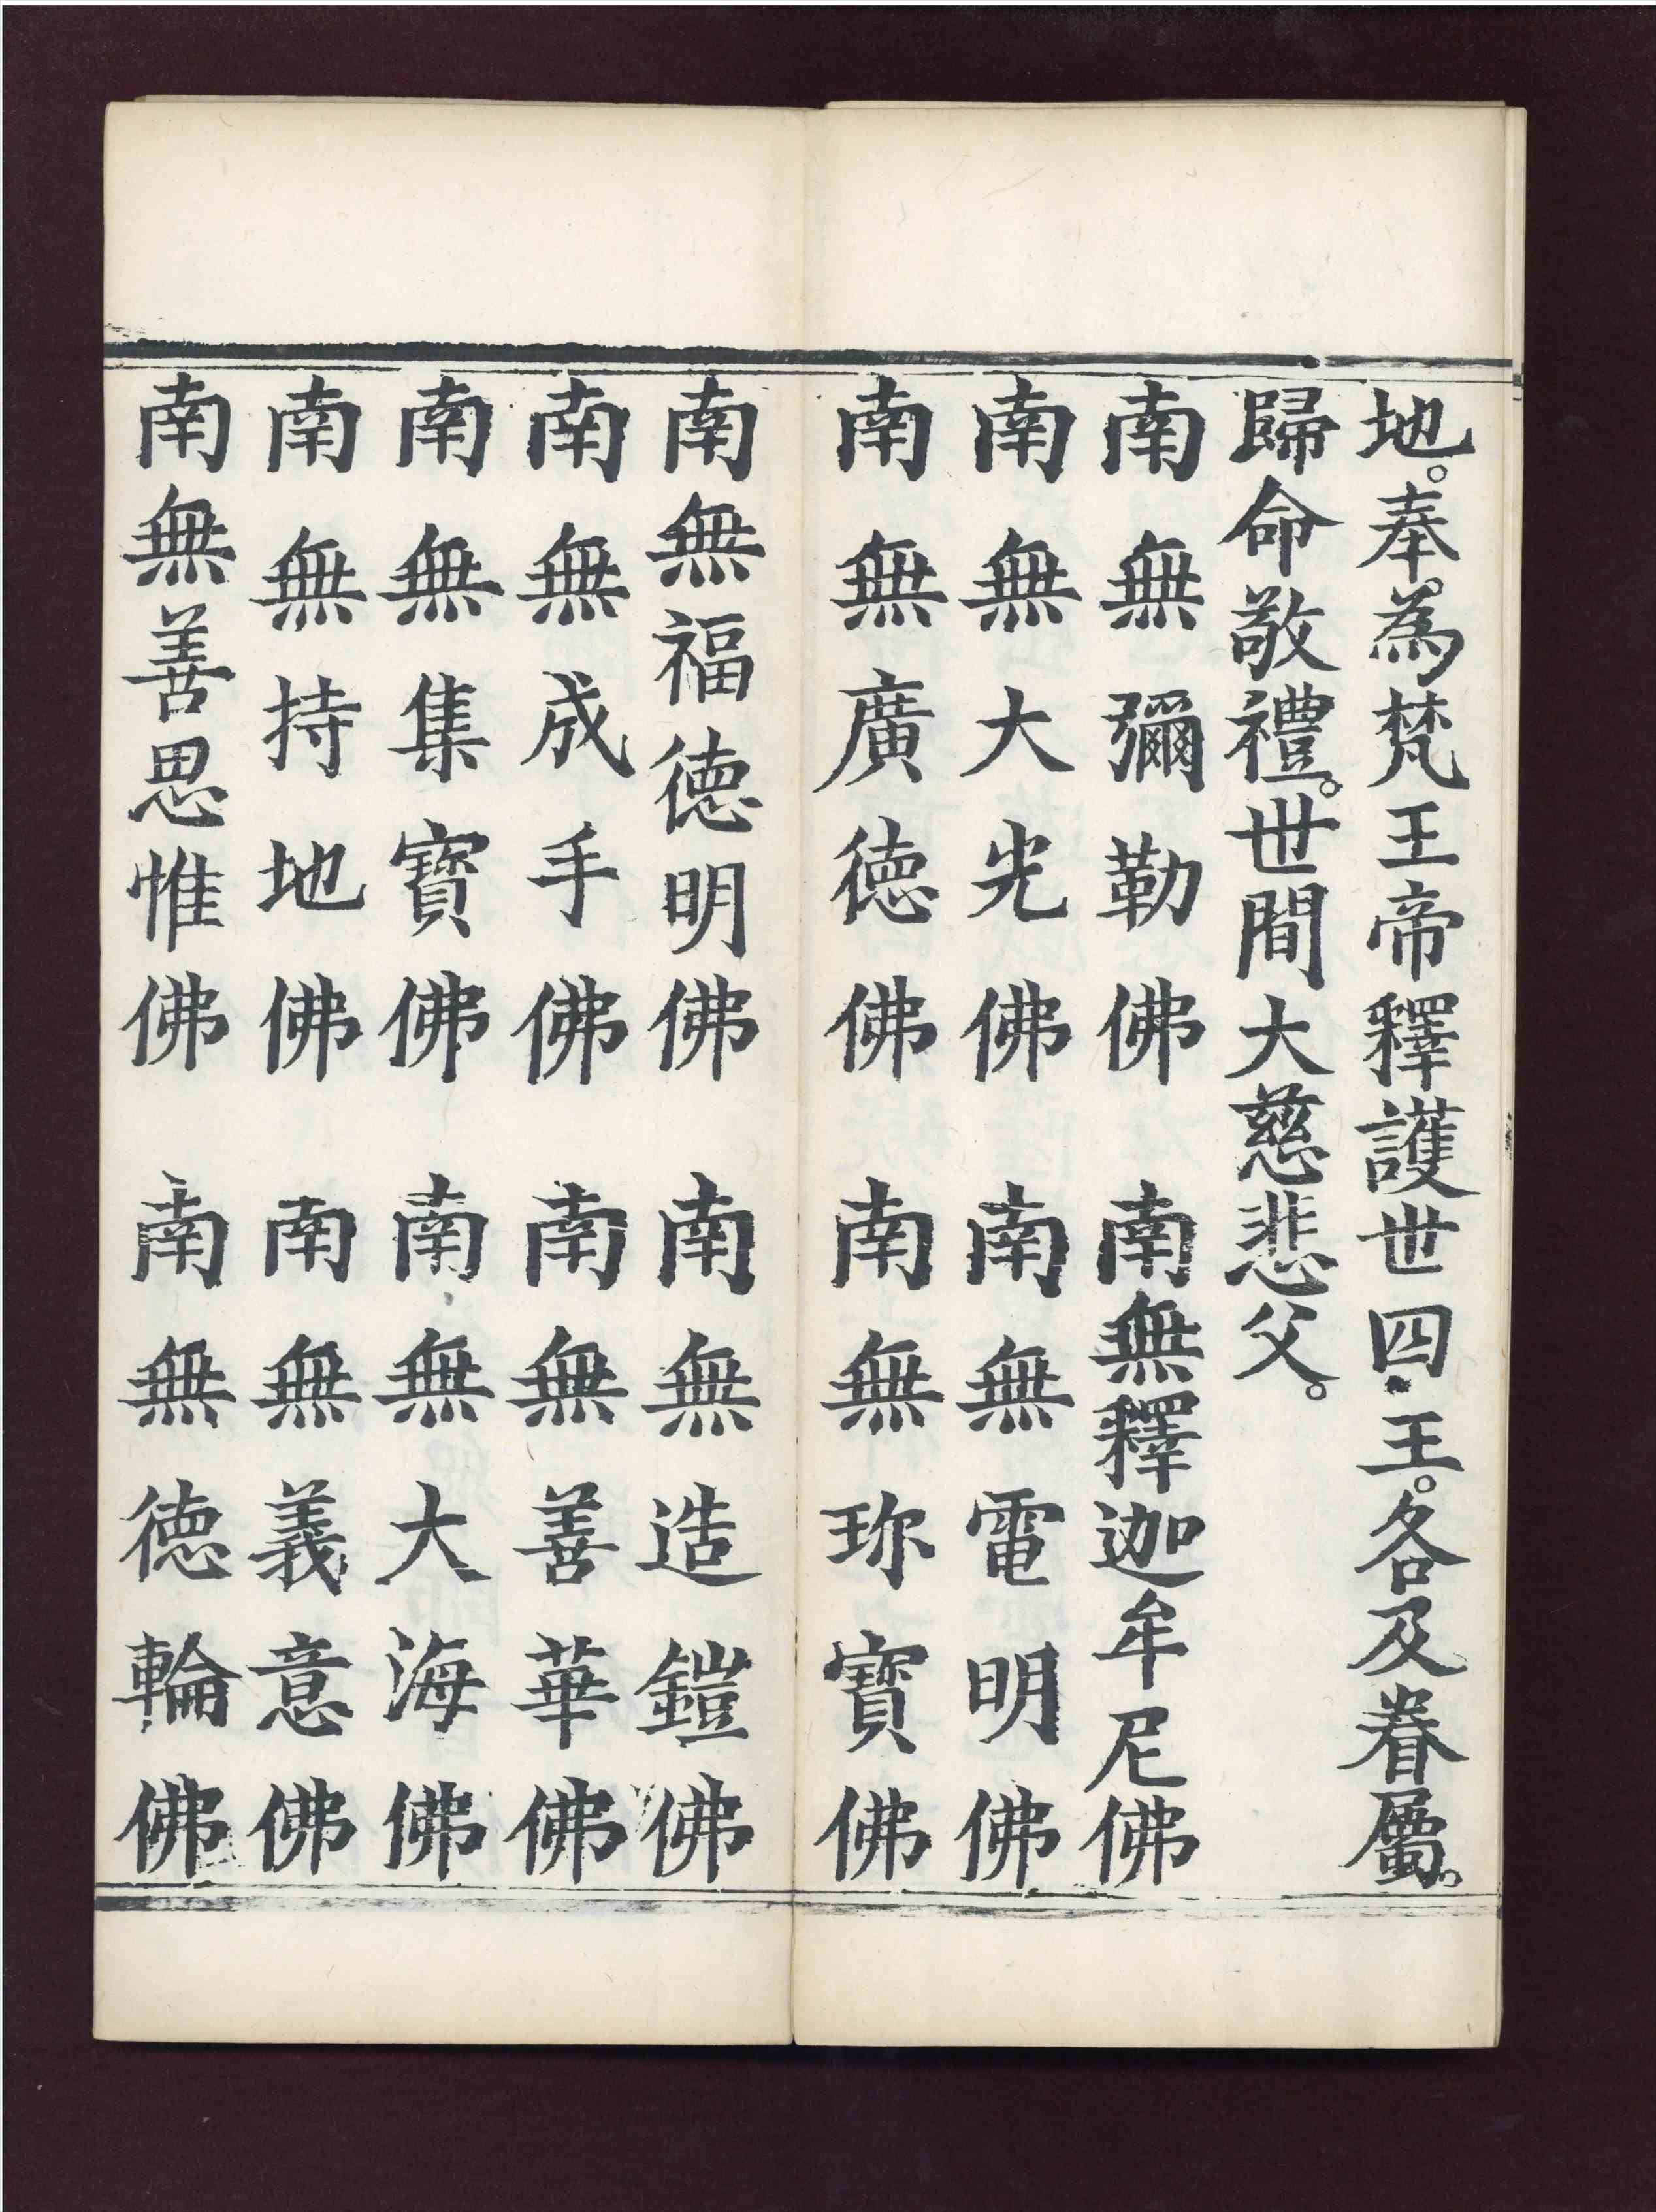 地。奉為梵王帝釋護世四王。各及眷屬。
歸命敬禮。世間大慈悲父。
南無彌勒佛 南無釋迦牟尼佛
南無大光佛 南無電明佛
南無廣德佛 南無珎寶佛
南無福德明佛 南無造鎧佛
南無成手佛 南無善華佛
南無集寶佛 南無大海佛
南無持地佛 南無義意佛
南無善思惟佛 南無德輪佛